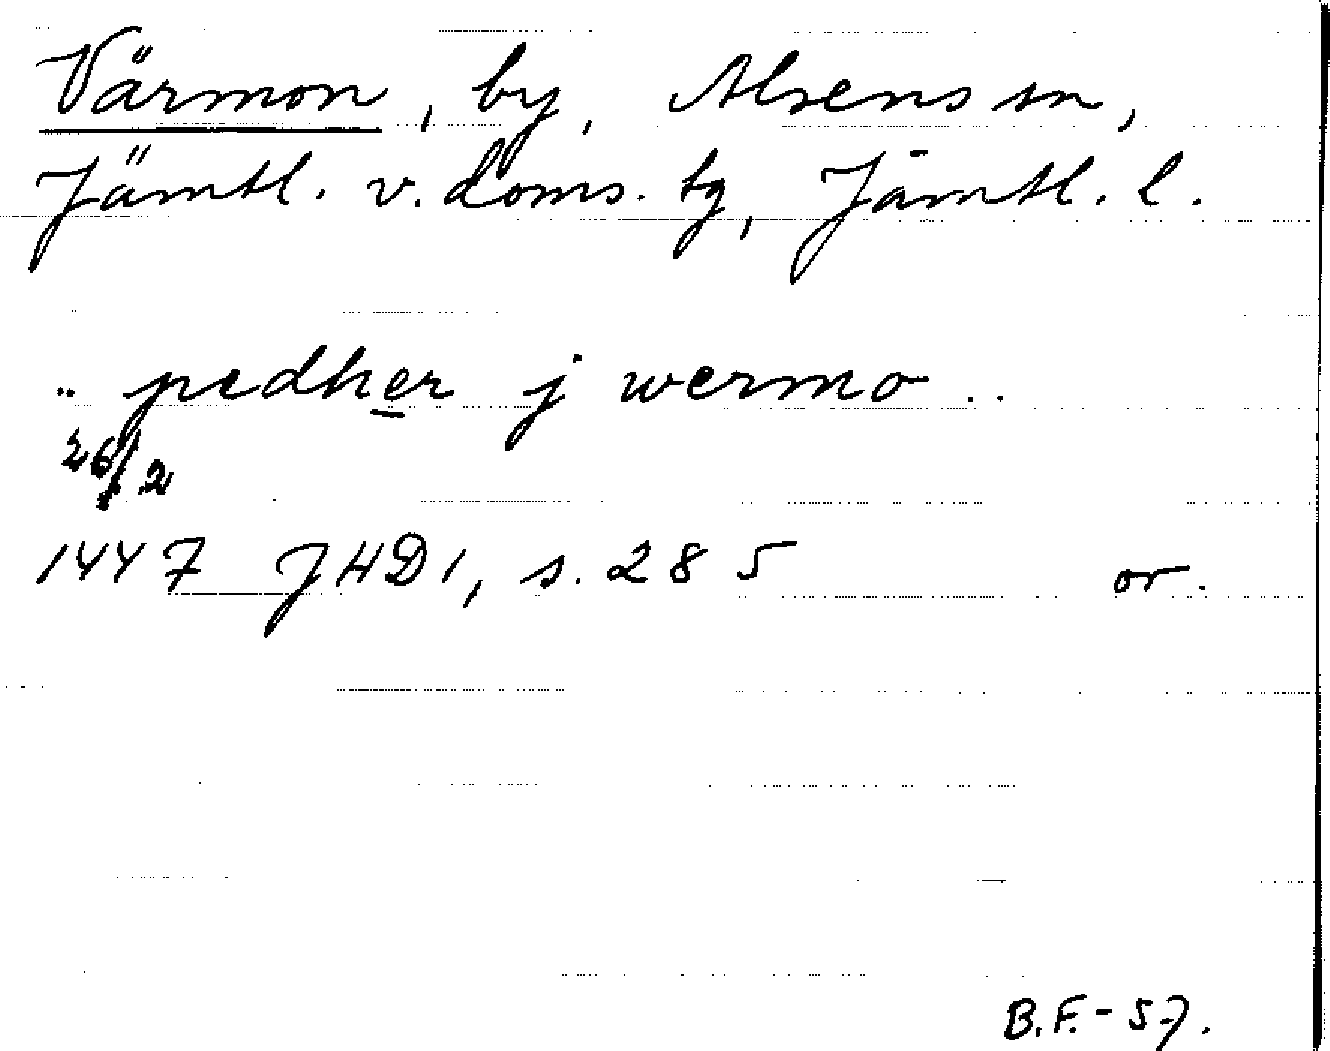 Värmon, by, Alsens sn,
Jämtl. v. doms. tg, Jämtl. l.
.. pedher j wermo ..
26/2
1447 JHD 1, s. 285 or.
B.F. - 57.